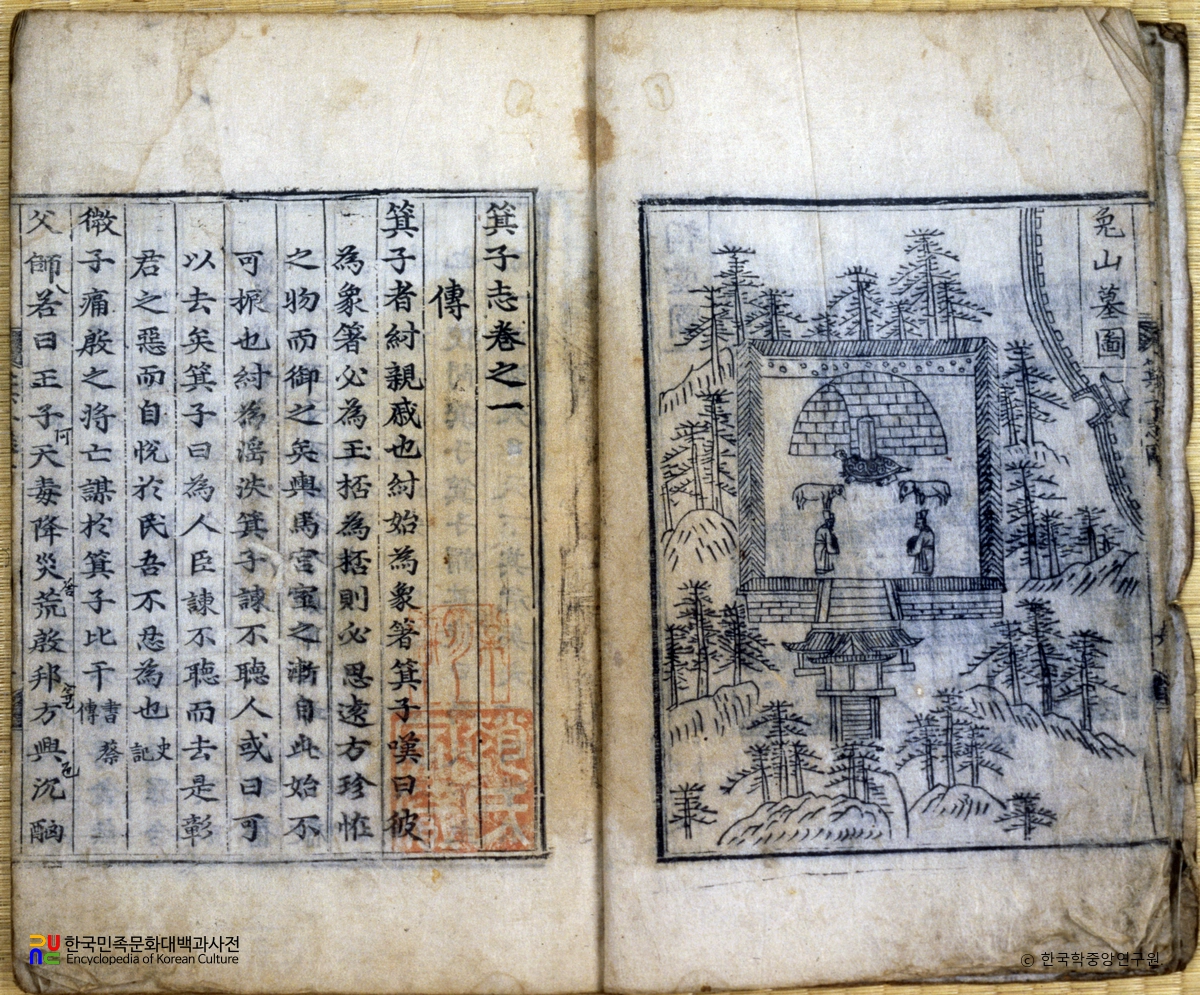 兎山墓圖
箕子志卷之一
傳
箕子者紂親戚也紂始為象箸箕子嘆曰彼
為象箸必為玉桮為桮則必思遠方珍恠
之物而御之矣輿馬宮室之漸自此始不
可振也紂為淫泆箕子諫不聽人或曰可
以去矣箕子曰為人臣諫不聽而去是彰
君之惡而自悅於民吾不忍為也史記
微子痛殷之將亡謀於箕子比干書蔡傳
父師若曰王子天毒降災荒殷邦方興沉酗
한국민족문화대백과사전
Encyclopedia of Korean Culture
© 한국학중앙연구원